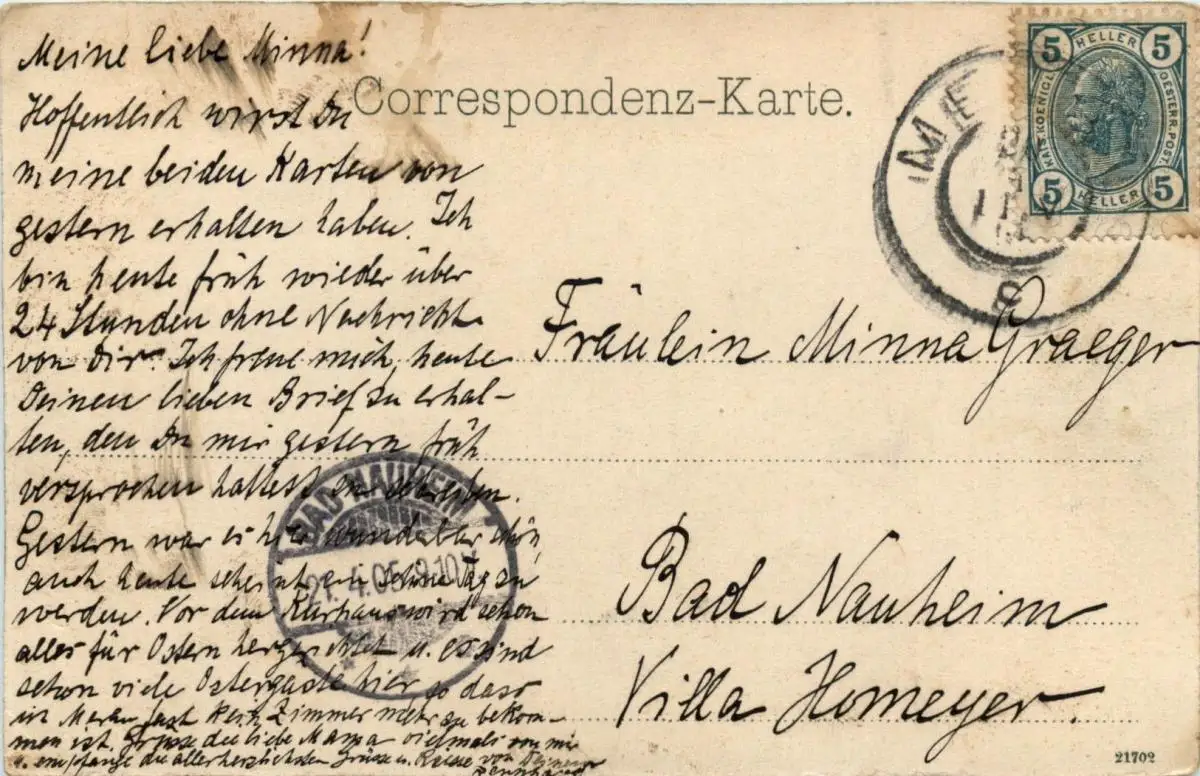 Meine liebe Minna!
Hoffentlich wirst Du
meine beiden Karten von
gestern erhalten haben. Ich
bin heute früh wieder über
24 Stunden ohne Nachricht
von Dir. Ich freue mich, heute
Deinen lieben Brief zu erhal-
ten, den Du mir gestern früh
versprochen hattest zu schreiben.
Gestern war es hier wunderbar schön,
auch heute scheint ein schöner Tag zu
werden. Vor dem Kurhaus wird schon
alles für Ostern hergerichtet u. es sind
schon viele Ostergäste hier so dass
in Meran fast kein Zimmer mehr zu bekom-
men ist. Grüsse die liebe Mama vielmals von mir
u. empfange die allerherzlichsten Grüsse u. Küsse von Deinem
Correspondenz-Karte.
5 HELLER 5
KAIS. KOENIGL. OESTERR. POST.
5 HELLER 5
ME
Fräulein Minna Graeger
Bad Nauheim
Villa Homeyer.
BAD-NAUHEIM
21.4.05
21702